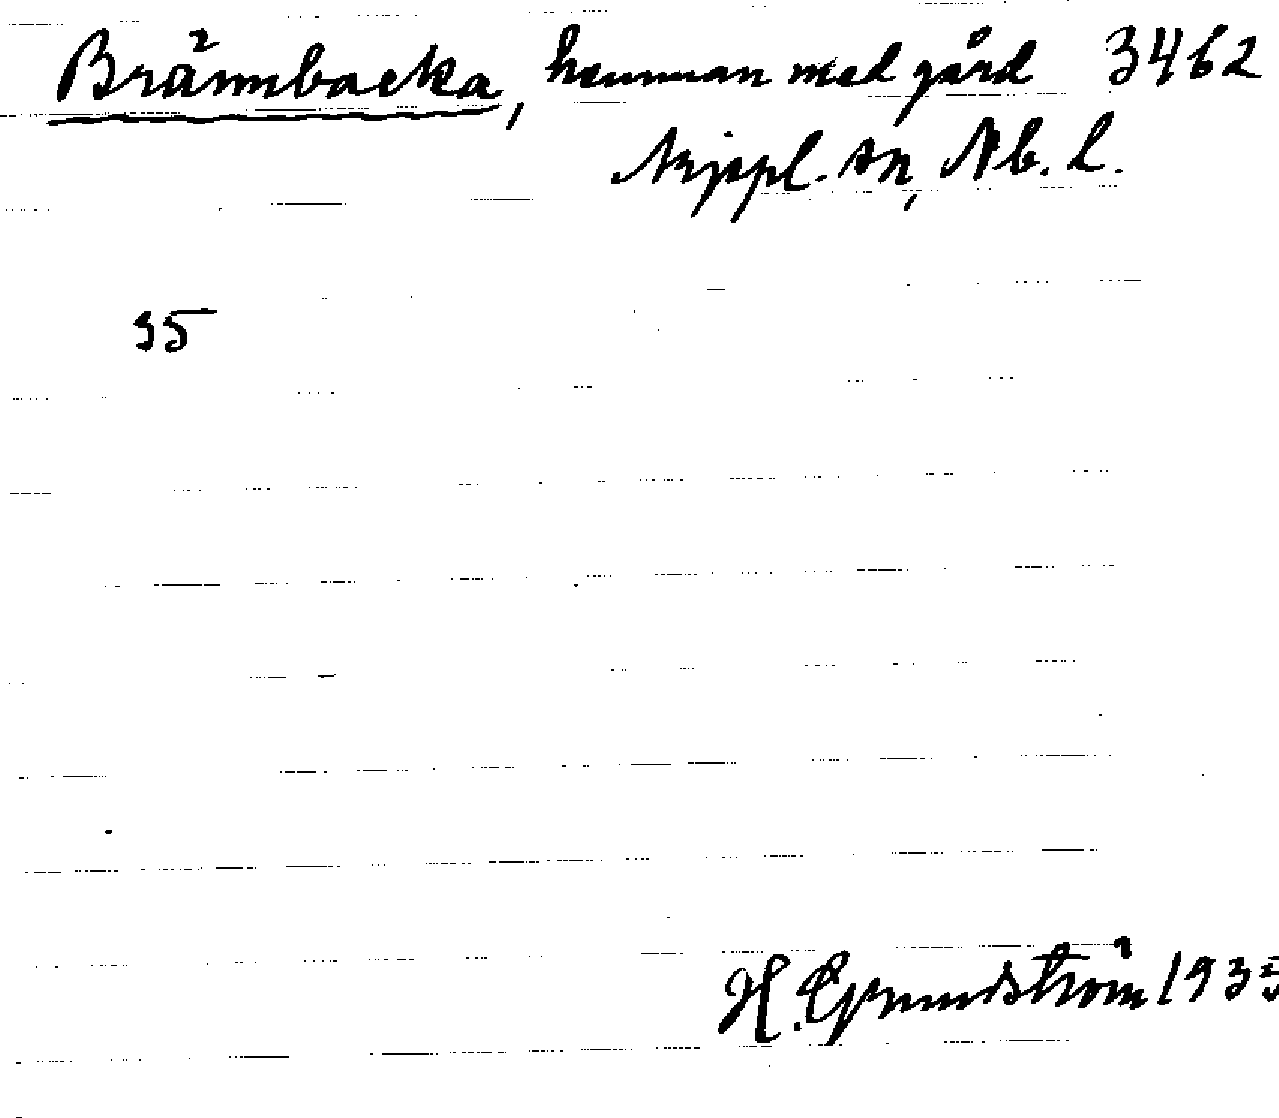 Brännbacka, hemman med gård 3462
Arjepl. sn, Nb. l.
35
H. Grundström 1935